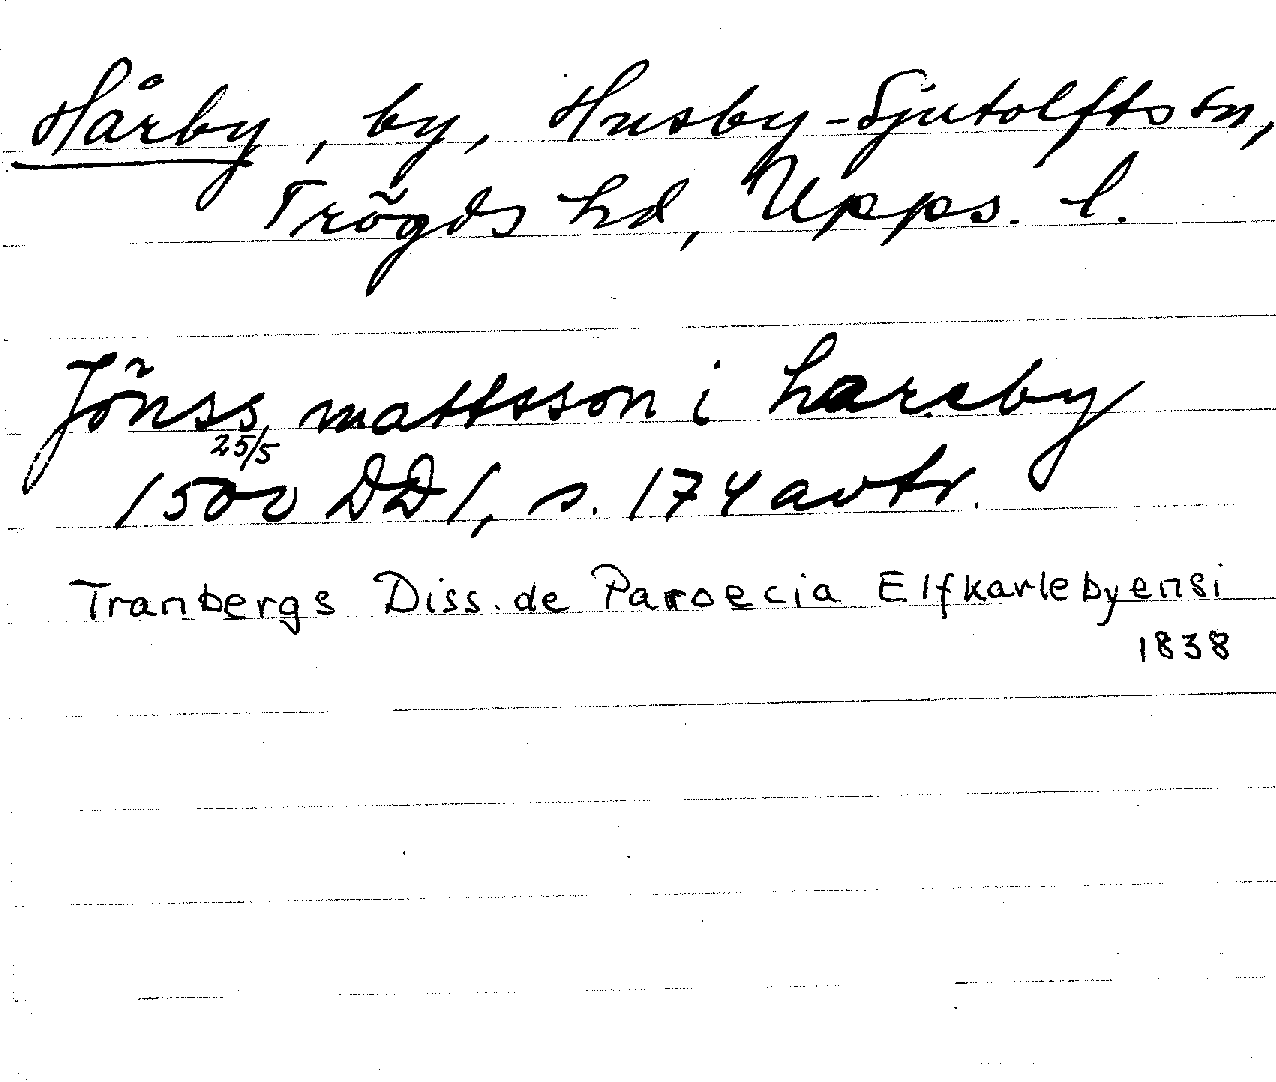 Hårby, by, Husby-Sjutolfts sn,
Trögds hd, Upps. l.
Jönss mattsson i hareby
25/5
1500 DD1, s. 174 avtr.
Tranbergs Diss. de Paroecia Elfkarlebyensi
1838